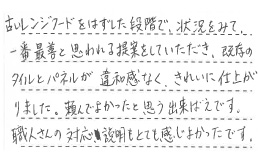 古いレンジフードをはずした段階で、状況をみて、
一番最善と思われる提案をしていただき、既存の
タイルとパネルが違和感なく、きれいに仕上が
りました。頼んでよかったと思う出来ばえです。
職人さんの対応、説明もとても感じよかったです。